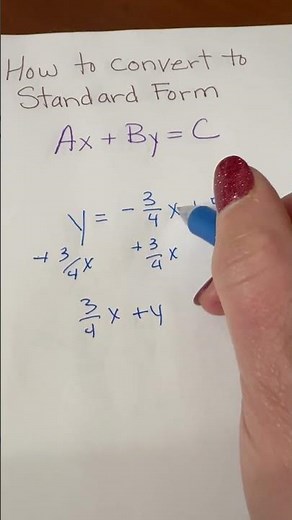 How to convert to
Standard Form
Ax + By = C
y = - 3/4 x +
+ 3/4 x + 3/4 x
3/4 x + y